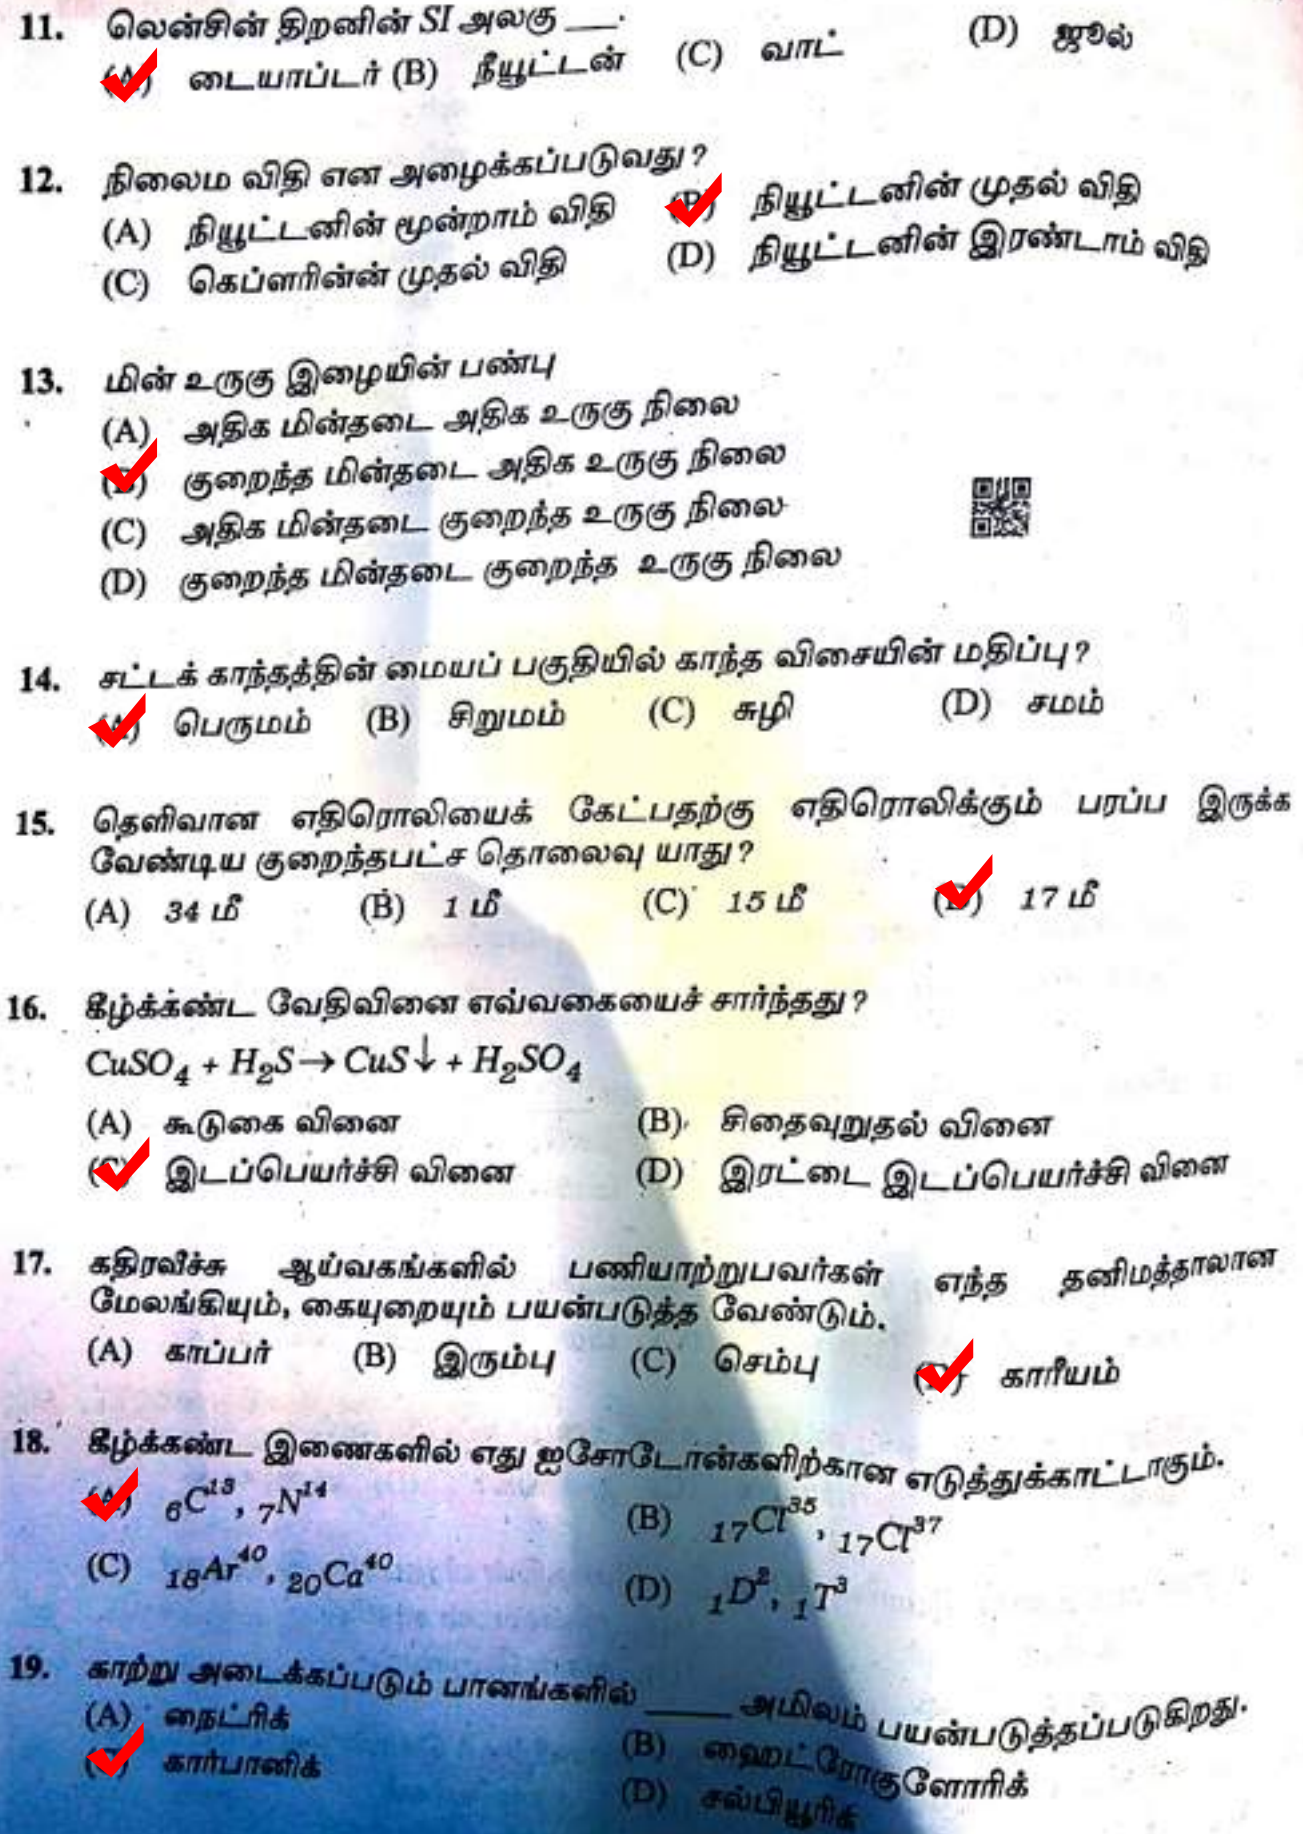 11. லென்சின் திறனின் SI அலகு ___.
(A) டையாப்டர் (B) நீயூட்டன் (C) வாட் (D) ஜூல்
12. நிலைம விதி என அழைக்கப்படுவது?
(A) நியூட்டனின் மூன்றாம் விதி (B) நியூட்டனின் முதல் விதி
(C) கெப்ளரின்ன் முதல் விதி (D) நியூட்டனின் இரண்டாம் விதி
13. மின் உருகு இழையின் பண்பு
(A) அதிக மின்தடை அதிக உருகு நிலை
(B) குறைந்த மின்தடை அதிக உருகு நிலை
(C) அதிக மின்தடை குறைந்த உருகு நிலை
(D) குறைந்த மின்தடை குறைந்த உருகு நிலை
14. சட்டக் காந்தத்தின் மையப் பகுதியில் காந்த விசையின் மதிப்பு?
(A) பெருமம் (B) சிறுமம் (C) சுழி (D) சமம்
15. தெளிவான எதிரொலியைக் கேட்பதற்கு எதிரொலிக்கும் பரப்ப இருக்க
வேண்டிய குறைந்தபட்ச தொலைவு யாது?
(A) 34 மீ (B) 1 மீ (C) 15 மீ (D) 17 மீ
16. கீழ்க்கண்ட வேதிவினை எவ்வகையைச் சார்ந்தது?
CuSO₄ + H₂S → CuS↓ + H₂SO₄
(A) கூடுகை வினை (B) சிதைவுறுதல் வினை
(C) இடப்பெயர்ச்சி வினை (D) இரட்டை இடப்பெயர்ச்சி வினை
17. கதிரவீச்சு ஆய்வகங்களில் பணியாற்றுபவர்கள் எந்த தனிமத்தாலான
மேலங்கியும், கையுறையும் பயன்படுத்த வேண்டும்.
(A) காப்பர் (B) இரும்பு (C) செம்பு (D) காரீயம்
18. கீழ்க்கண்ட இணைகளில் எது ஐசோடோன்களிற்கான எடுத்துக்காட்டாகும்.
(A) ₆C¹³, ₇N¹⁴ (B) ₁₇Cl³⁵, ₁₇Cl³⁷
(C) ₁₈Ar⁴⁰, ₂₀Ca⁴⁰ (D) ₁D², ₁T³
19. காற்று அடைக்கப்படும் பானங்களில் ____ அமிலம் பயன்படுத்தப்படுகிறது.
(A) நைட்ரிக் (B) ஹைட்ரோகுளோரிக்
(C) கார்பானிக் (D) சல்பியூரிக்